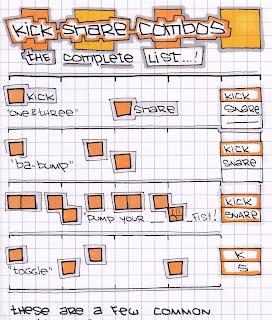 kick snare combos
the complete list...!
kick
"one & three" snare
kick
snare
"ba-bump"
kick
snare
"pump your __ __ fist!
kick
snare
"toggle"
K
S
these are a few common